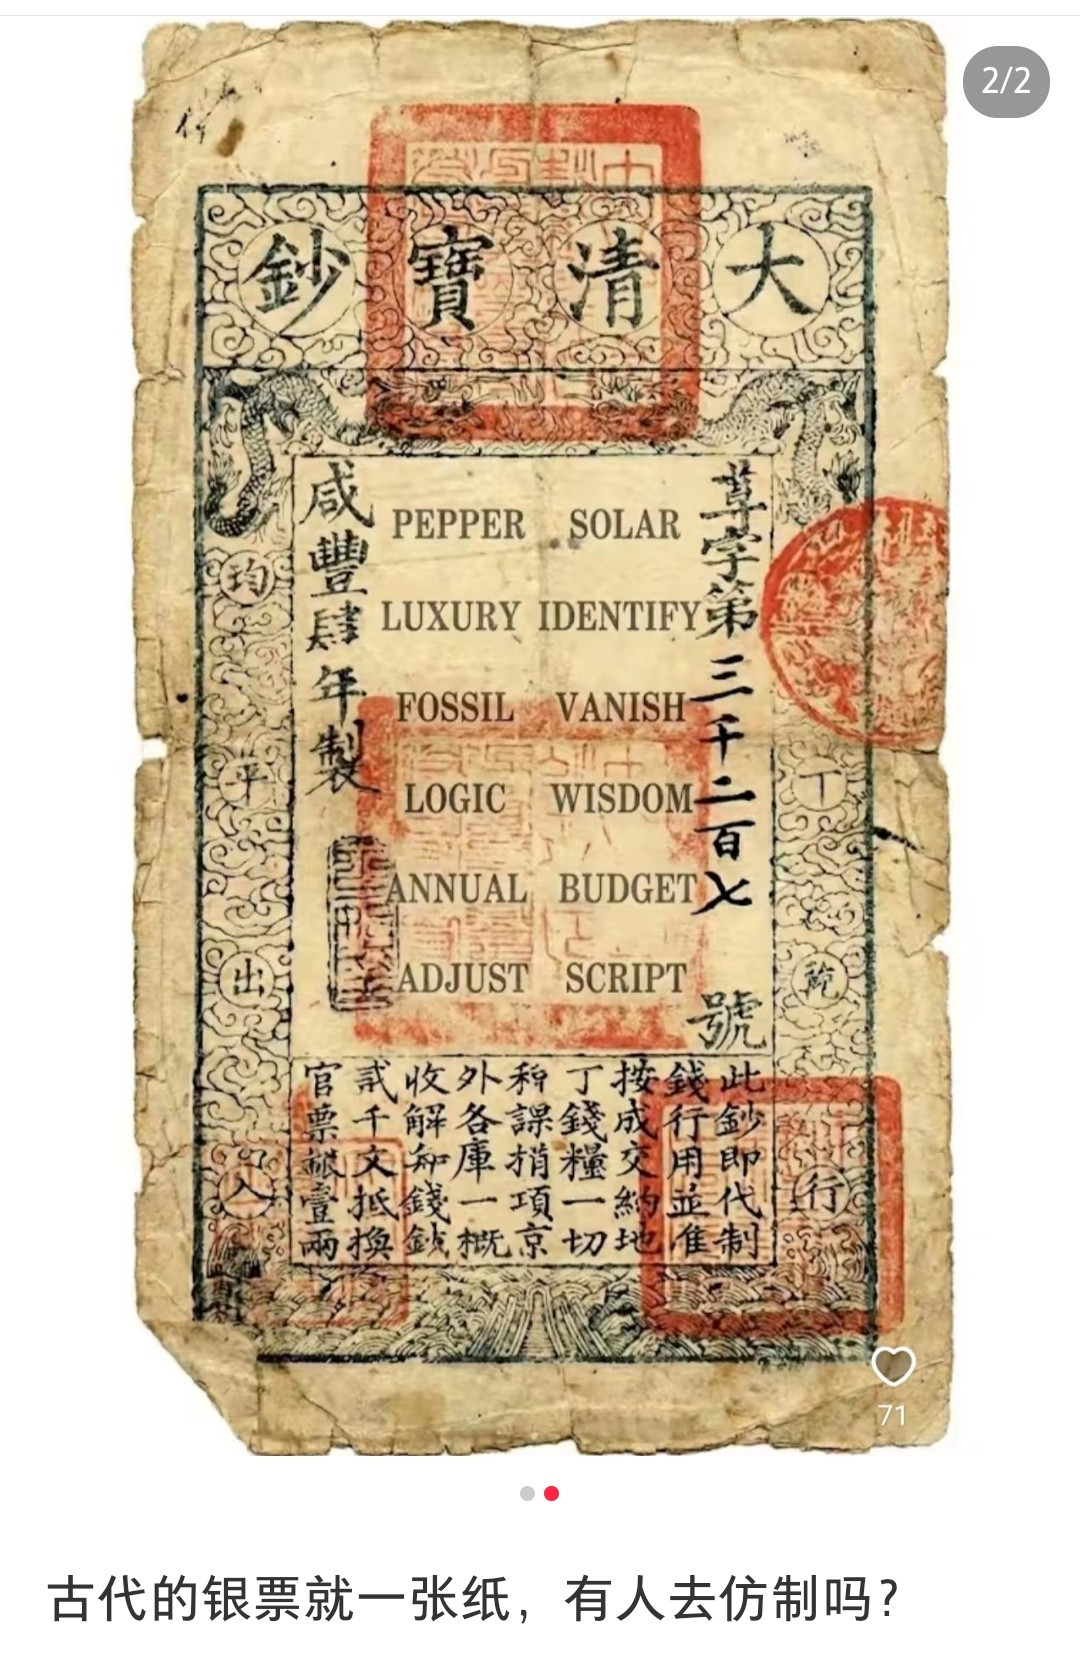 2/2
大清寶鈔
草字第三千二百七號
PEPPER SOLAR
LUXURY IDENTIFY
FOSSIL VANISH
LOGIC WISDOM
ANNUAL BUDGET
ADJUST SCRIPT
咸豐肆年製
均平出入
行
此鈔即代制
錢行用並准
按成交納地
丁錢糧一切
稅課捐項京
外各庫一概
收解每錢鈔
貳千文抵換
官票銀壹兩
71
古代的银票就一张纸，有人去仿制吗？